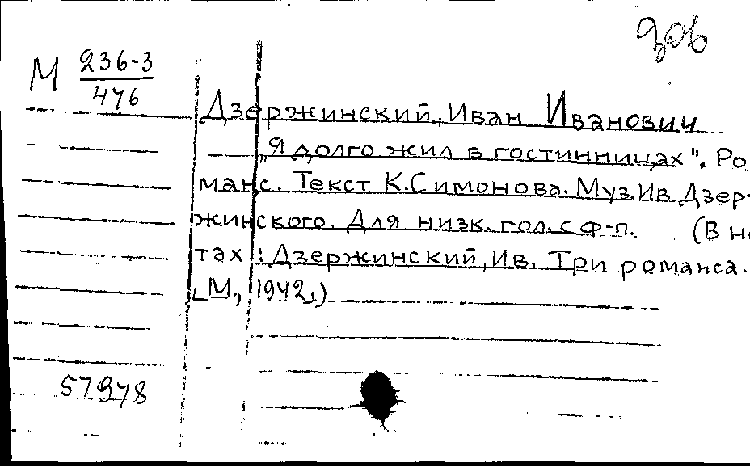 дов
М 236-3
476
Дзержинский, Иван Иванович
„Я долго жил в гостинницах". Ро
манс. Текст К. Симонова. Муз. Ив. Дзер-
жинского. Для низк. гол. с ф-п. (В но
тах: Дзержинский, Ив. Три романса.
М., 1942,)
57978